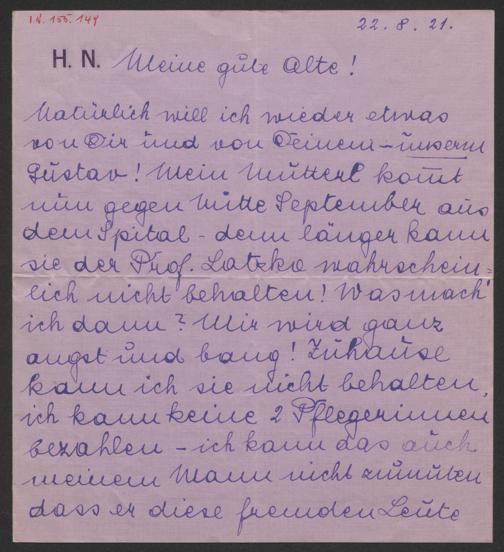 I.N. 155.149
22.8.21.
H. N. Meine gute Alte!
Natürlich will ich wieder etwas
von Dir und von Deinem – unserm
Gustav! Mein Mutterl kom̅t
nun gegen Mitte September aus
dem Spital – denn länger kann
sie der Prof. Latzko wahrschein=
lich nicht behalten! Was mach'
ich dann? Mir wird ganz
angst und bang! Zuhause
kann ich sie nicht behalten,
ich kann keine 2 Pflegerinnen
bezahlen – ich kann das auch
meinem Mann nicht zumuten
dass er diese fremden Leute